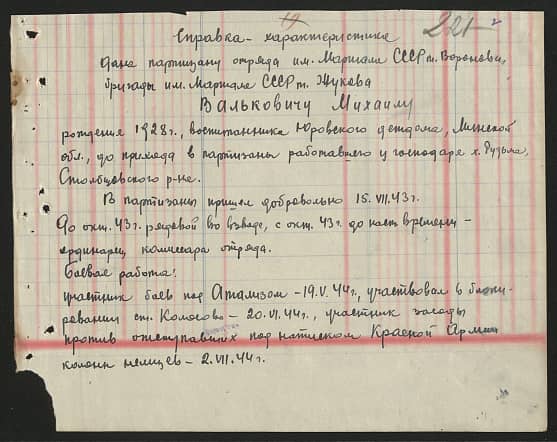 19 221 2
Справка-характеристика
дана партизану отряда им. Маршала СССР т. Воронова,
бригады им. Маршала СССР т. Жукова
Вальковичу Михаилу
рождения 1928 г., воспитанника Юровского детдома, Минской
обл., до прихода в партизаны работавшего у господаря х. Гузьма,
Столбцовского р-на.
В партизаны пришел добровольно 15.VII.43 г.
До окт. 43 г. рядовой во взводе, с окт. 43 г. до наст. времени –
ординарец комиссара отряда.
боевая работа:
участник боев под – 19.V.44 г., участвовал в блоки-
ровании ст. Колосово – 20.VI.44 г., участник засады
против отступавших под натиском Красной Армии
колонн немцев – 2.VII.44 г.